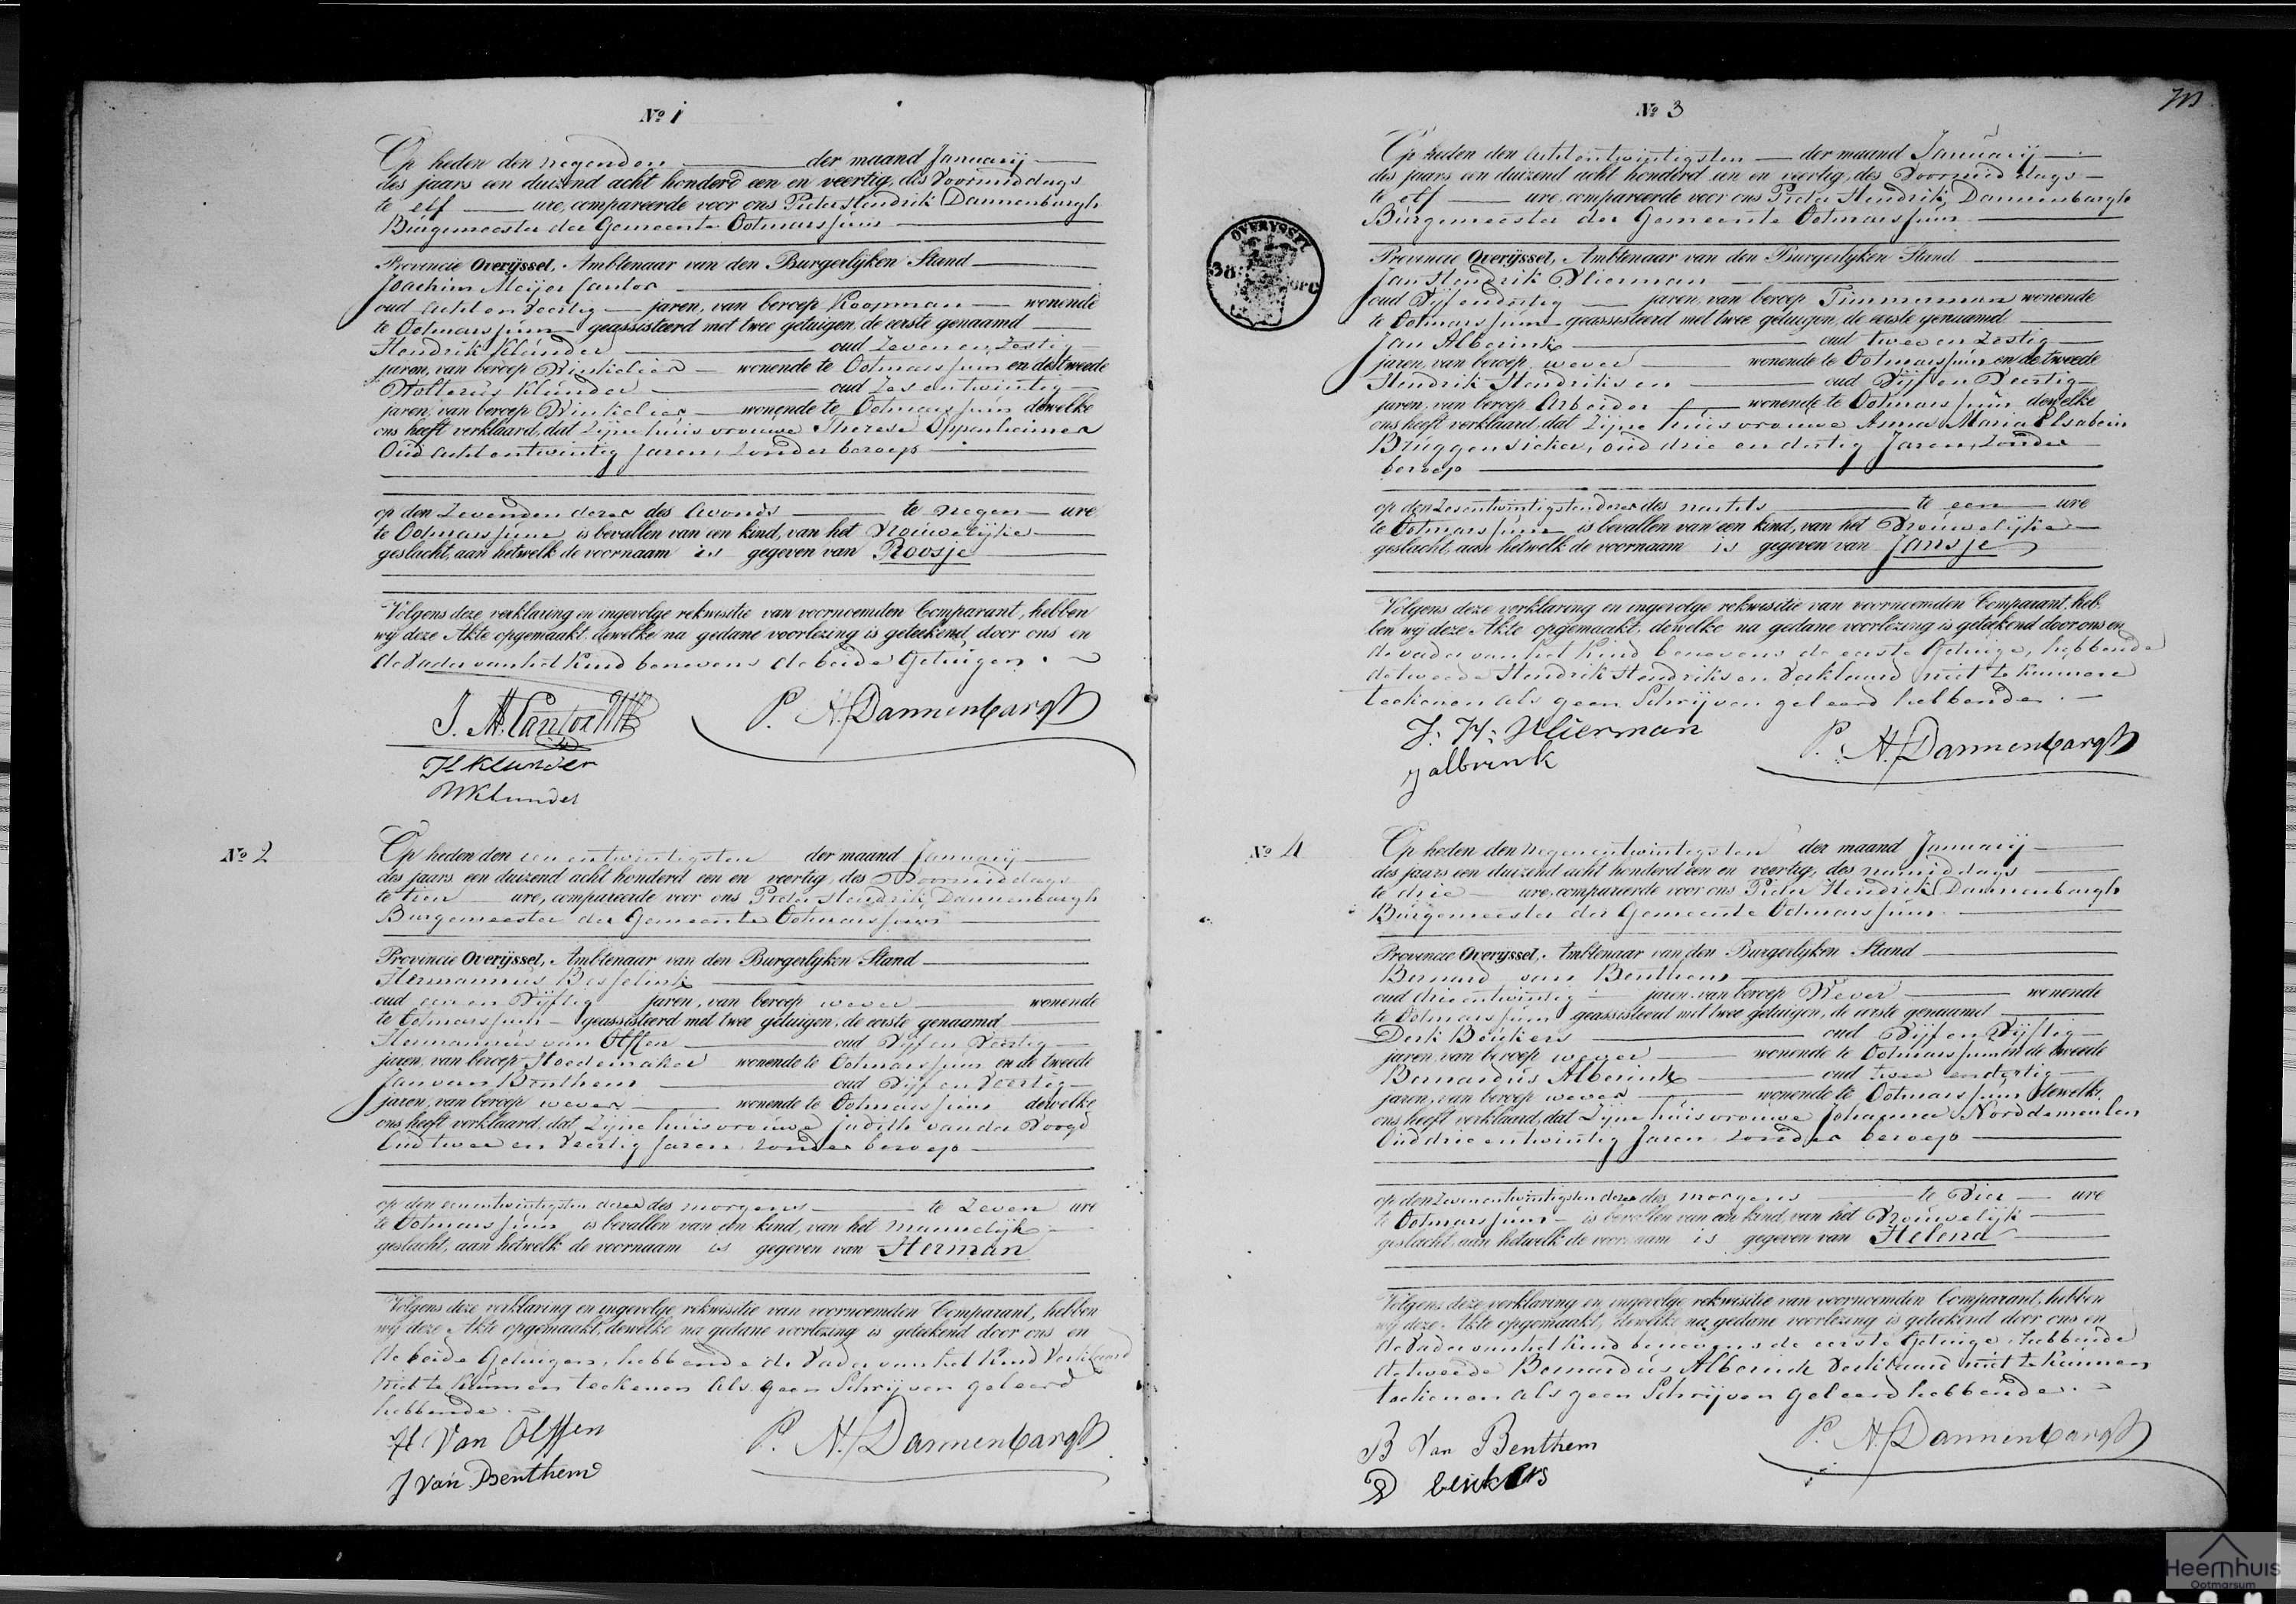 Nº 1
Op heden den negenden der maand Januarij
des jaars een duizend acht honderd een en veertig, des Voormiddags
te elf ure, compareerde voor ons Pieter Hendrik Dannenbargh
Burgemeester der Gemeente Ootmarssum
Provincie Overijssel, Ambtenaar van den Burgerlyken Stand
Joachim Meijer Cantor
oud acht en Veertig jaren, van beroep Koopman wonende
te Ootmarssum geassisteerd met twee getuigen, de eerste genaamd
Hendrik Klunder oud Zeven en Zestig
jaren, van beroep Winkelier wonende te Ootmarssum en de tweede
Wolterus Klunder oud Zes en twintig
jaren, van beroep Winkelier wonende te Ootmarssum dewelke
ons heeft verklaard, dat Zijne huisvrouwe Therese Oppenheimer
Oud acht en twintig Jaren, Zonder beroep
op den Zevenden dezer des Avonds te negen ure
te Ootmarssum is bevallen van een kind, van het Vrouwelijke
geslacht, aan hetwelk de voornaam is gegeven van Roosje
Volgens deze verklaring en ingevolge rekwisitie van voornoemden Comparant, hebben
wy deze Akte opgemaakt, dewelke na gedane voorlezing is geteekend door ons en
de Vader van het Kind benevens de beide Getuigen.
J. M. Cantor P. H. Dannenbargh
H Klunder
W Klunder
Nº 2
Op heden den een en twintigsten der maand Januarij
des jaars een duizend acht honderd een en veertig, des Voormiddags
te tien ure, compareerde voor ons Pieter Hendrik Dannenbargh
Burgemeester der Gemeente Ootmarssum
Provincie Overijssel, Ambtenaar van den Burgerlyken Stand
Hermannus Besselink
oud een en Vijftig jaren, van beroep wever wonende
te Ootmarssum geassisteerd met twee getuigen, de eerste genaamd
Hermannus van Olffen oud Vijf en Veertig
jaren, van beroep Hoedemaker wonende te Ootmarssum en de tweede
Jan van Benthem oud Vijf en Veertig
jaren, van beroep wever wonende te Ootmarssum dewelke
ons heeft verklaard, dat Zijne huisvrouwe Judith van der Voogd
Oud twee en Veertig Jaren zonder beroep
op den een en twintigsten dezer des morgens te Zeven ure
te Ootmarssum is bevallen van een kind, van het mannelijk
geslacht, aan hetwelk de voornaam is gegeven van Herman
Volgens deze verklaring en ingevolge rekwisitie van voornoemden Comparant, hebben
wy deze Akte opgemaakt, dewelke na gedane voorlezing is geteekend door ons en
de beide Getuigen, hebbende de Vader van het Kind Verklaard
niet te kunnen teekenen als geen Schrijven geleerd
hebbende.
H Van Olffen P. H. Dannenbargh
J Van Benthem
Nº 3
Op heden den acht en twintigsten der maand Januarij
des jaars een duizend acht honderd een en veertig, des Voormiddags
te elf ure, compareerde voor ons Pieter Hendrik Dannenbargh
Burgemeester der Gemeente Ootmarssum
OVERYSSEL
38
Provincie Overijssel, Ambtenaar van den Burgerlyken Stand
Jan Hendrik Vlierman
oud Vijf en dertig jaren, van beroep Timmerman wonende
te Ootmarssum geassisteerd met twee getuigen, de eerste genaamd
Jan Alberink oud twee en Zestig
jaren, van beroep wever wonende te Ootmarssum en de tweede
Hendrik Hendriksen oud Vijf en Veertig
jaren, van beroep Arbeider wonende te Ootmarssum dewelke
ons heeft verklaard, dat Zijne huisvrouwe Anna Maria Elsabein
Bruggensicker, oud drie en dertig Jaren, Zonder
beroep
op den Zes en twintigsten dezer des nachts te een ure
te Ootmarssum is bevallen van een kind, van het Vrouwelijke
geslacht, aan hetwelk de voornaam is gegeven van Jansje
Volgens deze verklaring en ingevolge rekwisitie van voornoemden Comparant, heb-
ben wy deze Akte opgemaakt, dewelke na gedane voorlezing is geteekend door ons en
de vader van het Kind benevens de eerste Getuige, hebbende
de tweede Hendrik Hendriksen Verklaard niet te kunnen
teekenen als geen Schrijven geleerd hebbende.
J. H. Vlierman P. H. Dannenbargh
J albrink
Nº 4
Op heden den negen en twintigsten der maand Januarij
des jaars een duizend acht honderd een en veertig, des namiddags
te drie ure, compareerde voor ons Pieter Hendrik Dannenbargh
Burgemeester der Gemeente Ootmarssum
Provincie Overyssel, Ambtenaar van den Burgerlyken Stand
Bernard van Benthem
oud drie en twintig jaren, van beroep Wever wonende
te Ootmarssum geassisteerd met twee getuigen, de eerste genaamd
Derk Beukers oud Vijf en Vijftig
jaren, van beroep wever wonende te Ootmarssum en de tweede
Bernardus Alberink oud twee en dertig
jaren, van beroep wever wonende te Ootmarssum dewelke
ons heeft verklaard, dat Zijne huisvrouwe Johanna Norddemeulen
Oud drie en twintig Jaren zonder beroep
op den Zeven en twintigsten dezer des morgens te Vier ure
te Ootmarssum is bevallen van een kind, van het Vrouwelijk
geslacht, aan hetwelk de voornaam is gegeven van Helena
Volgens deze verklaring en ingevolge rekwisitie van voornoemden Comparant, hebben
wy deze Akte opgemaakt, dewelke na gedane voorlezing is geteekend door ons en
de Vader van het Kind benevens de eerste Getuige, hebbende
de tweede Bernardus Alberink Verklaard niet te kunnen
teekenen als geen Schrijven geleerd hebbende.
B Van Benthem P. H. Dannenbargh
D beukers
Heemhuis
Ootmarsum